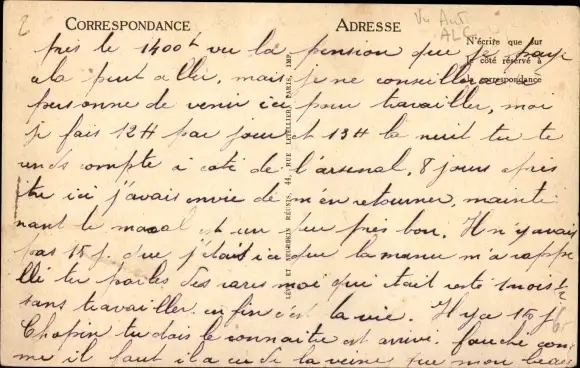 2
CORRESPONDANCE
ADRESSE
ALG
N'écrire que sur
le côté réservé à
la correspondance
près le 1400f vu la pension que je paye
cela peut aller, mais je ne conseillerai
personne de venir ici pour travailler, moi
je fais 12H par jour et 13H la nuit tu te
rends compte à coté de l'arsenal, 8 jours après
être ici j'avais envie de m'en retourner, mainte
nant le moral est un peu près bon. Il n'y avait
pas 15 j. que j'étais ici que la manu m'a rappe
lli tu parles des rares moi qui était resté 1 mois ½
sans travailler. enfin c'est la vie. Il y a 15 j
Chopin tu dois le connaitre est arrivé. Fauché com
me il faut il a eu de la veine que mon beau
LÉVY ET NEURDEIN RÉUNIS, 44, RUE LETELLIER, PARIS, IMP.